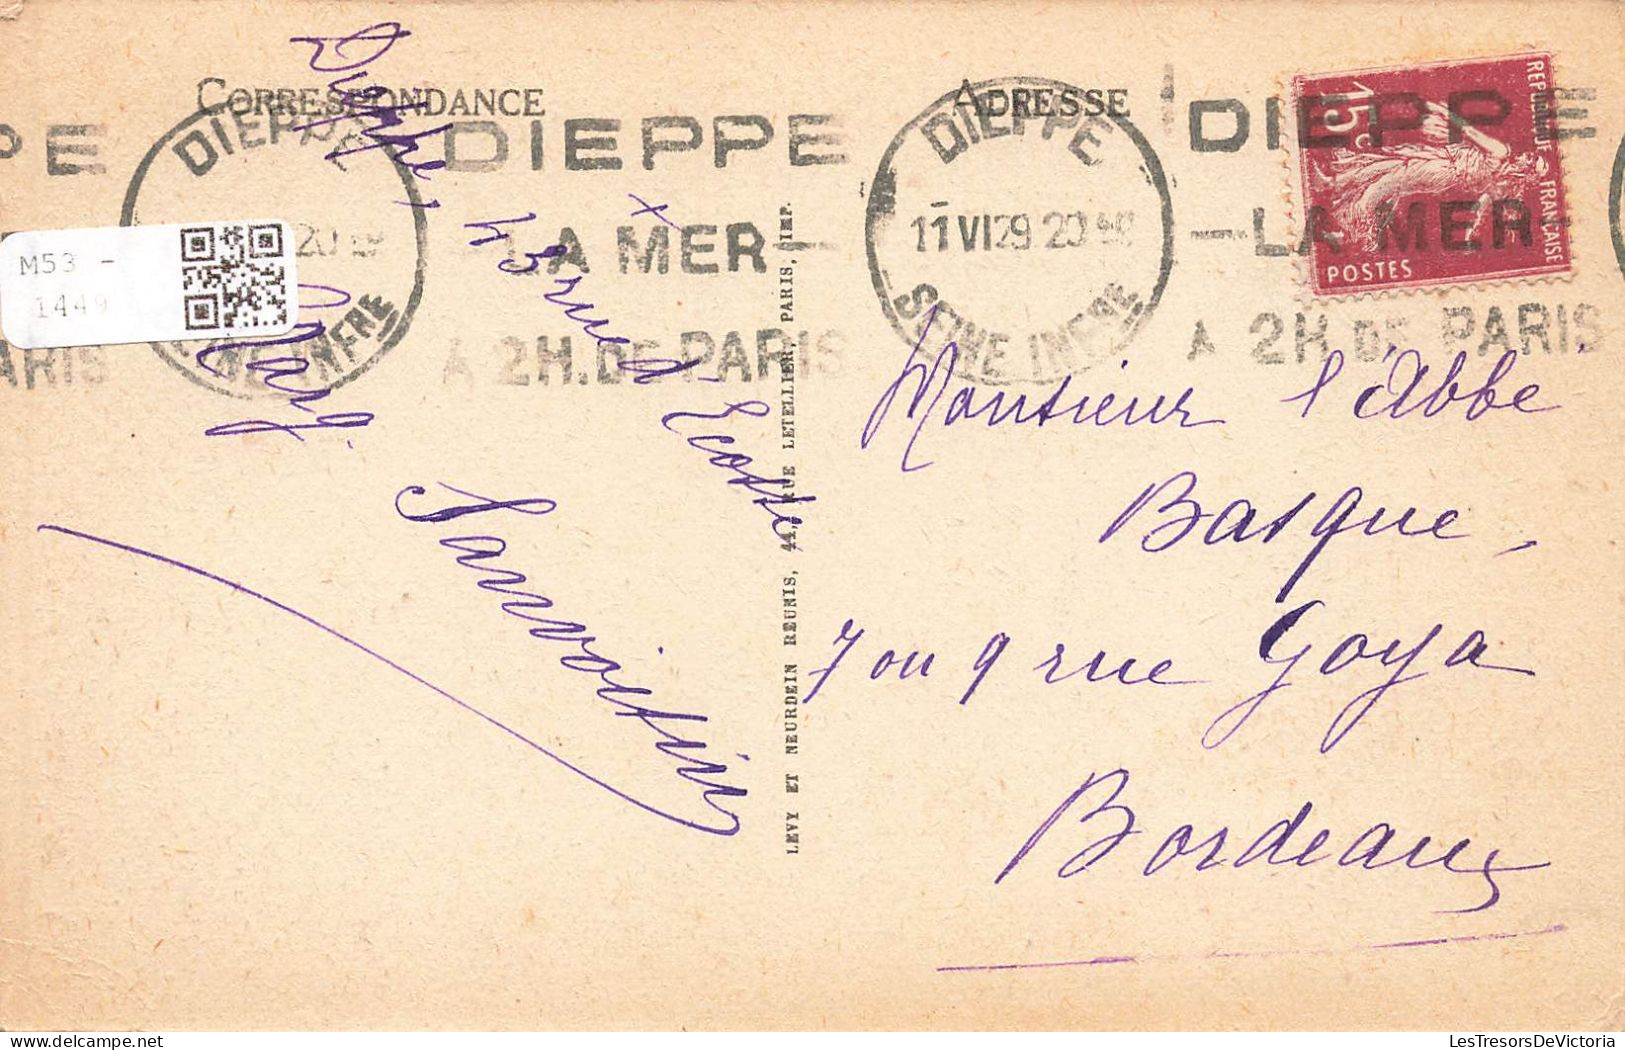 CORRESPONDANCE
ADRESSE
PE
ARIS
DIEPPE
DIEPPE
LA MER
A 2H. DE PARIS
DIEPPE
11 VI 29 20
SEINE INFRE
DIEPPE
LA MER
A 2H. DE PARIS
REPUBLIQUE FRANÇAISE
15c
POSTES
M53 -
1449
Dieppe,
43 rue d'Ecosse,
Sanvoisin
LEVY ET NEURDEIN REUNIS, 44, RUE LETELLIER, PARIS, IMP.
Monsieur l'Abbé
Basque,
7 ou 9 rue Goya
Bordeaux
LesTresorsDeVictoria